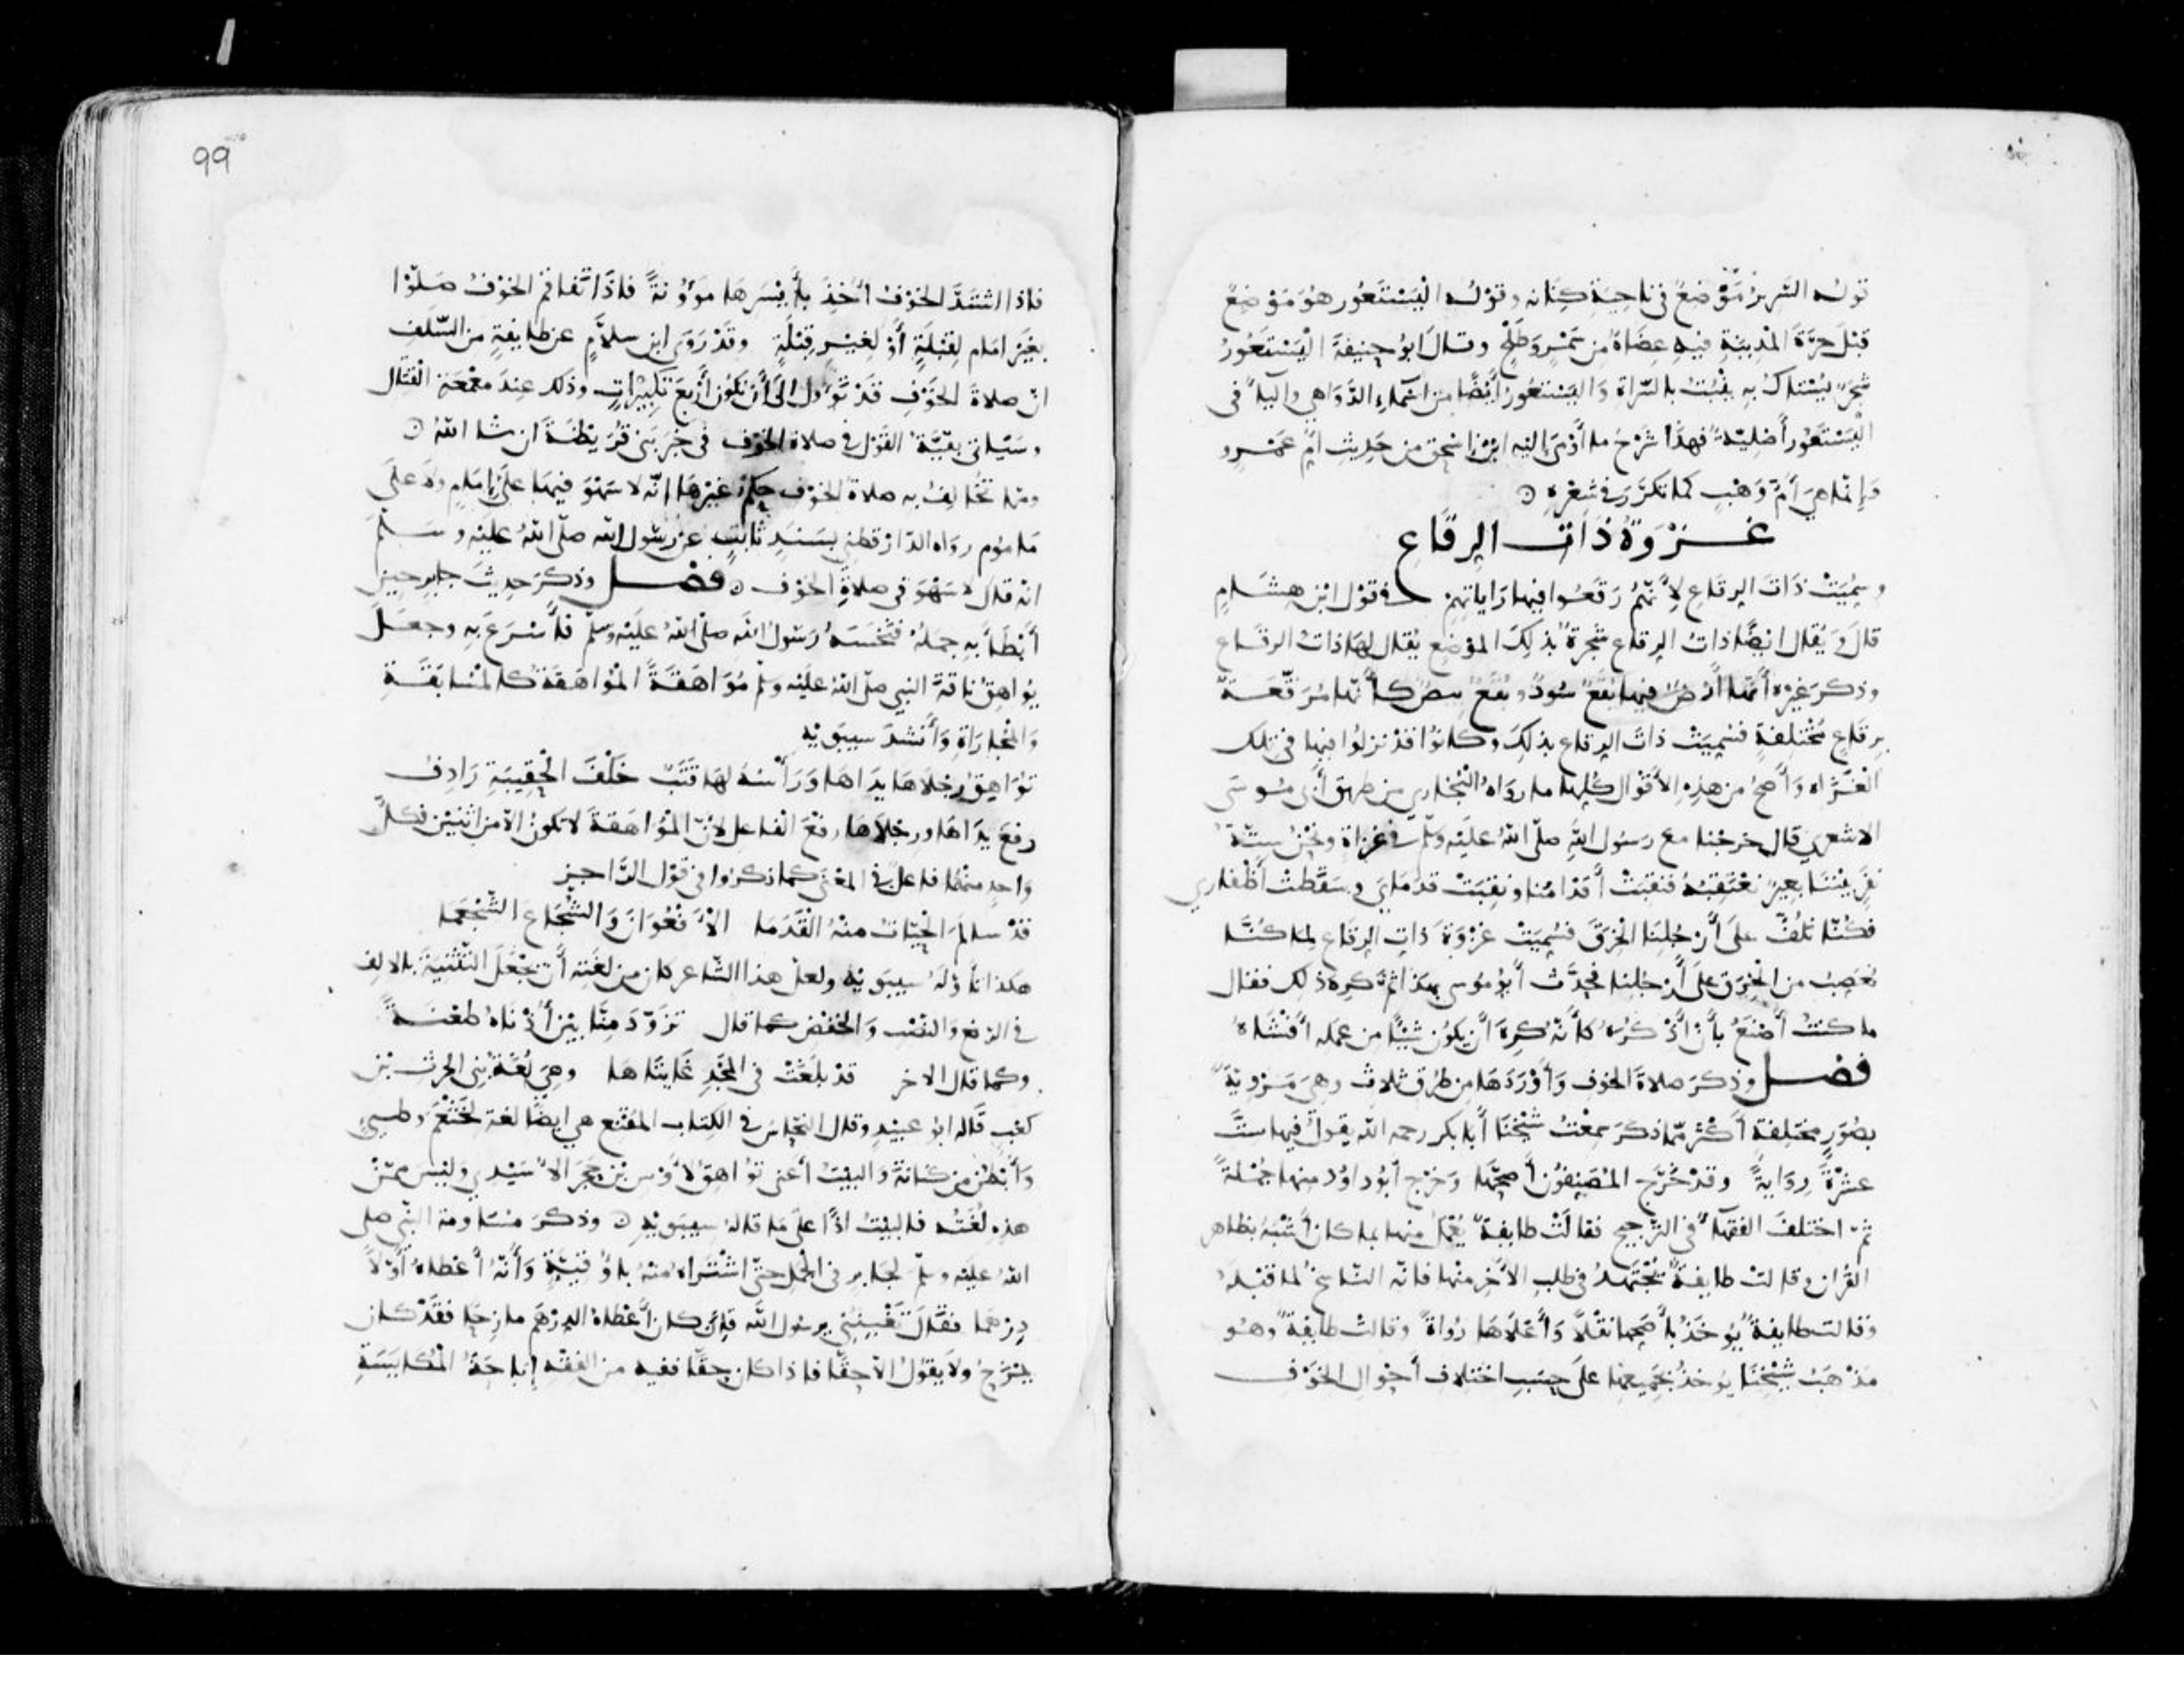 قوله السرير موضع في ناحية كنانه وقوله اليستعور هو موضع
قبل حرة المدينة فيه عضاه من سمر وطلح وقال ابو حنيفة اليستعور
شجر يستاك به ينبت بالسراة واليستعور ايضا من اسماء الدواهي والياء في
اليستعور أصلية فهذا شرح ما أومى اليه ابن اسحق من حديث ام عمرو
وإنما هي أم وهب كما تكرر في شعره
غزوة ذات الرقاع
وسميت ذات الرقاع لأنهم رقعوا فيها راياتهم في قول ابن هشام
قال ويقال ايضا ذات الرقاع شجرة بذلك الموضع يقال لها ذات الرقاع
وذكر غيره أنها أرض فيها بقع سود وبقع بيض كأنها مرقعة
برقاع مختلفة فسميت ذات الرقاع بذلك وكانوا قد نزلوا فيها في تلك
الغزاه وأصح من هذه الأقوال كلها ما رواه البخاري من طريق أبي موسى
الاشعري قال خرجنا مع رسول الله صلى الله عليه وسلم في غزاة ونحن ستة
نفر بيننا بعير نعتقبه فنقبت أقدامنا ونقبت قدماي وسقطت أظفاري
فكنا نلف على أرجلنا الخرق فسميت غزوة ذات الرقاع لما كنا
نعصب من الخرق على أرجلنا فحدث أبو موسى بهذا ثم كره ذلك فقال
ما كنت أصنع بأن أذكره كأنه كره أن يكون شيئا من عمله أفشاه
فصل وذكر صلاة الخوف وأوردها من طرق ثلاث وهي مروية
بصور مختلفة أكثر مما ذكر سمعت شيخنا أبا بكر رحمه الله يقول فيها ست
عشرة رواية وقد خرج المصنفون أصحها وخرج أبو داود منها جملة
ثم اختلف الفقهاء في الترجيح فقالت طايفة يعمل منها بما كان أشبه بظاهر
القران وقالت طايفة يجتهد في طلب الأخر منها فانه الناسخ لما قبله
وقالت طايفة يوخذ بأصحها نقلا وأعلاها رواة وقالت طايفة وهو
مذهب شيخنا يوخذ بجميعها على حسب اختلاف أحوال الخوف
99
فاذا اشتد الخوف أخذ بأيسرها موونة فاذا تفاقم الخوف صلوا
بغير امام لقبلة أو لغير قبلة وقد روى ابن سلام عن طايفة من السلف
ان صلاة الخوف قد تؤول الى أن تكون أربع تكبيرات وذلك عند معمعة القتال
وسياتي بقية القول في صلاة الخوف في خبر بني قريظة ان شا الله
ومما تخالف به صلاة الخوف حكم غيرها انه لا سهو فيها على إمام ولا على
ماموم رواه الدارقطني بسند ثابت عن رسول الله صلى الله عليه وسلم
انه قال لا سهو في صلاة الخوف فصل وذكر حديث جابر حين
أبطأ به جمله فنخسه رسول الله صلى الله عليه وسلم فأسرع به وجعل
يواهق ناقة النبي صلى الله عليه وسلم مواهقة المواهقة كالمسابقة
والمجاراة وأنشد سيبويه
تواهق رجلاها يداها ورأسه لها قتب خلف الحقيبة رادف
رفع يداها ورجلاها رفع الفاعل لان المواهقة لا تكون الا من اثنين فكل
واحد منهما فاعل في المعنى كما ذكروا في قول الراجز
قد سالم الحيات منه القدما الأفعوان والشجاع الشجعما
هكذا تأوله سيبويه ولعل هذا الشاعر كان من لغته أن يجعل التثنية بالالف
في الرفع والنصب والخفض كما قال تزود منا بين أذناه طعنة
وكما قال الاخر قد بلغت في المجد غايتاها وهي لغة بني الحرث بن
كعب قاله ابو عبيد وقال النحاس في الكتاب المقنع هي ايضا لغة لخثعم وطيي
وأبطن من كنانة والبيت أعني تواهق لأوس بن حجر الأسيدي وليس ممن
هذه لغته فالبيت اذا على ما قاله سيبويه وذكر مساومة النبي صلى
الله عليه وسلم لجابر في الجمل حتى اشتراه منه بأوقية وأنه أعطاه أولا
درهما فقال تغبنني يرسول الله فان كان أعطاه الدرهم مازحا فقد كان
يمزح ولا يقول الا حقا فاذا كان حقا ففيه من الفقه إباحة المكايسة